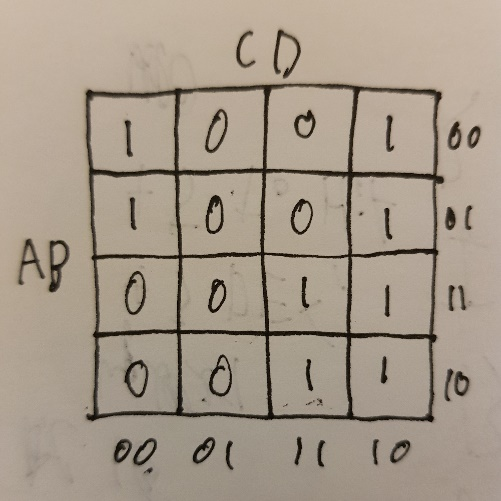 CD
1 0 0 1 00
1 0 0 1 01
AB
0 0 1 1 11
0 0 1 1 10
00 01 11 10